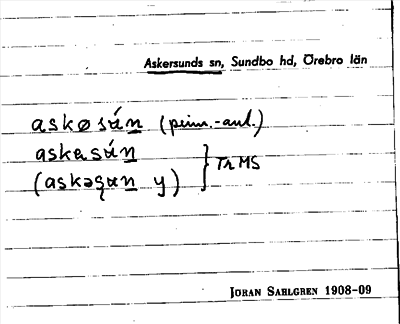 Askersunds sn, Sundbo hd, Örebro län
askøsán (prim.-anl.)
askasán
(askəsan y) } Tr MS
JÖRAN SAHLGREN 1908-09